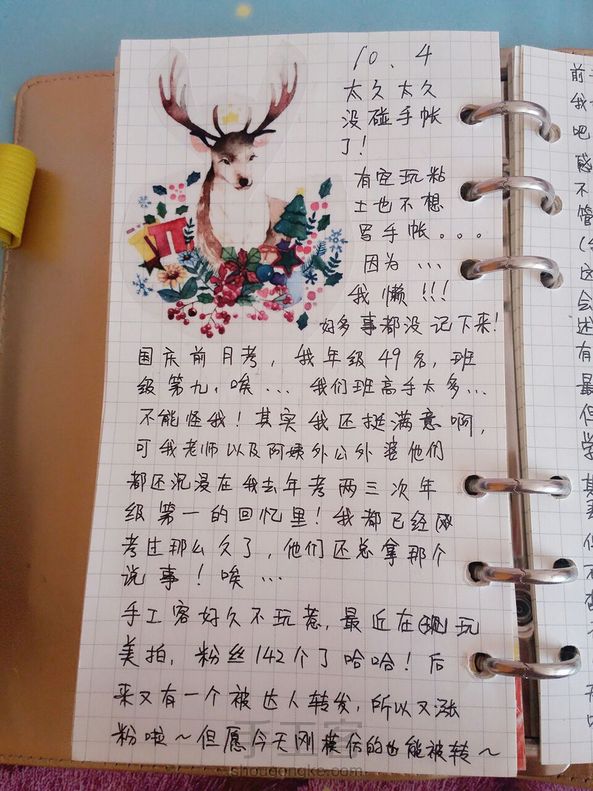 10.4
太久太久
没碰手帐
了！
有空玩粘
土也不想
写手帐。。。
因为...
我懒!!!
好多事都没记下来！
国庆前月考，我年级49名，班
级第九，唉... 我们班高手太多...
不能怪我！其实我还挺满意啊，
可我老师以及阿姨外公外婆他们
都还沉浸在我去年考两三次年
级第一的回忆里！我都已经
考过那么久了，他们还总拿那个
说事！唉...
手工客好久不玩惹，最近在玩
美拍，粉丝142个了哈哈！后
来又有一个被达人转发，所以又涨
粉啦～但愿今天刚模仿的也能被转～
手工客
shougongke.com
前
我
吧
不
管
这
会
述
有
最
但
学
其
但
不